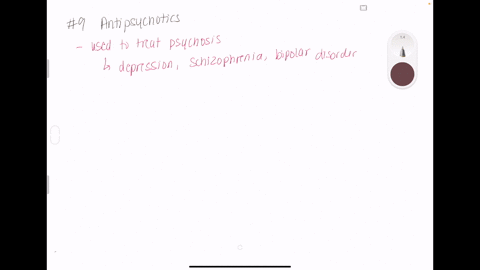 #9 Antipsychotics
- used to treat psychosis
↳ depression, schizophrenia, bipolar disorder